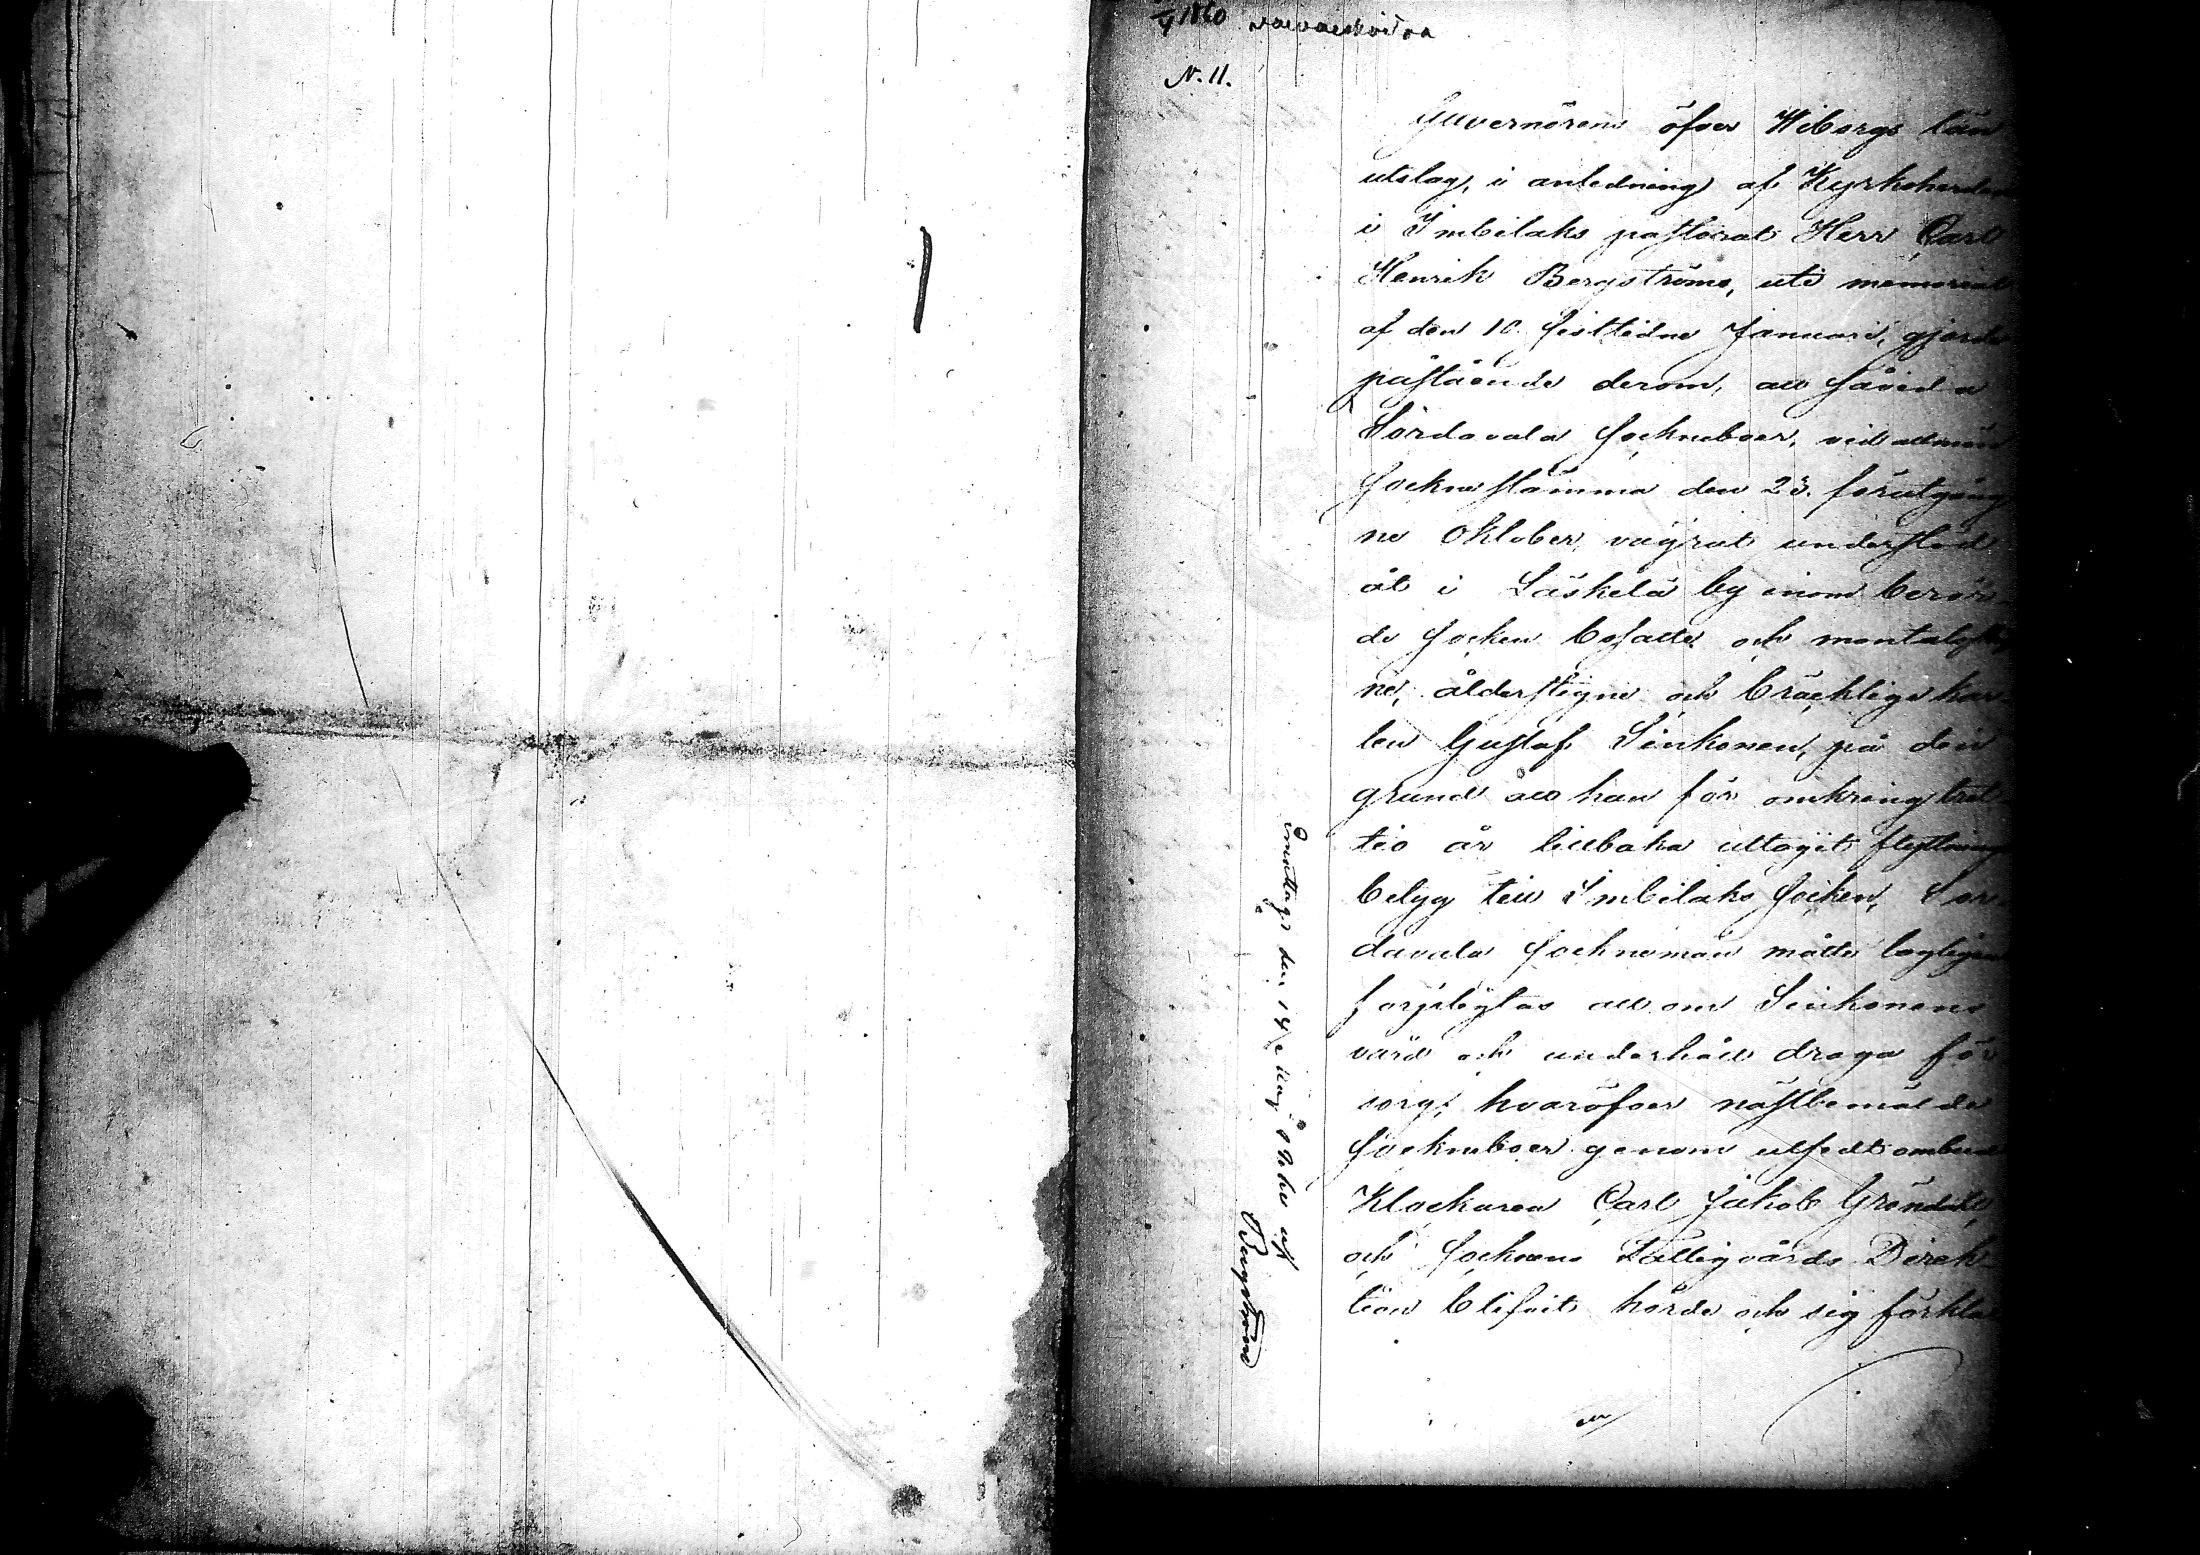 1860 vaivaishoitoa
N. 11.
Guvernörens öfver Wiborgs län
utslag, i anledning af Kyrkoherden
i Imbilaks pastorat Herr Carl
Henrik Bergströms, uti memorial
af den 10 sistledne Januari, gjorde
påstående derom, att såvida
Sordavala Sockneboer, vid allmän
Sockne stämma den 23. förutgång
ne Oktober, vägrat understöd
åt i Läskelä by inom berör-
de Socken bosatte och mantalsskrif
ne, ålderstigne och bräcklige kar-
len Gustaf Sinkonen, på den
grund att han för omkring tret-
tio år tillbaka uttagit flyttnings
betyg till Imbilaks Socken, Sor-
davala Socknemän måtte lagligen
förpligtas att om Sinkonens
vård och underhåll draga för
sorg; hvaröfver nästbemälde
Socknboer genom utsedt ombud
Klockaren Carl Jakob Gröndahl,
och Socknens Fattigvårds Direk-
tion blifvit hörde och sig förkla
Emottags den 14 Maj 1860 af
Bergström